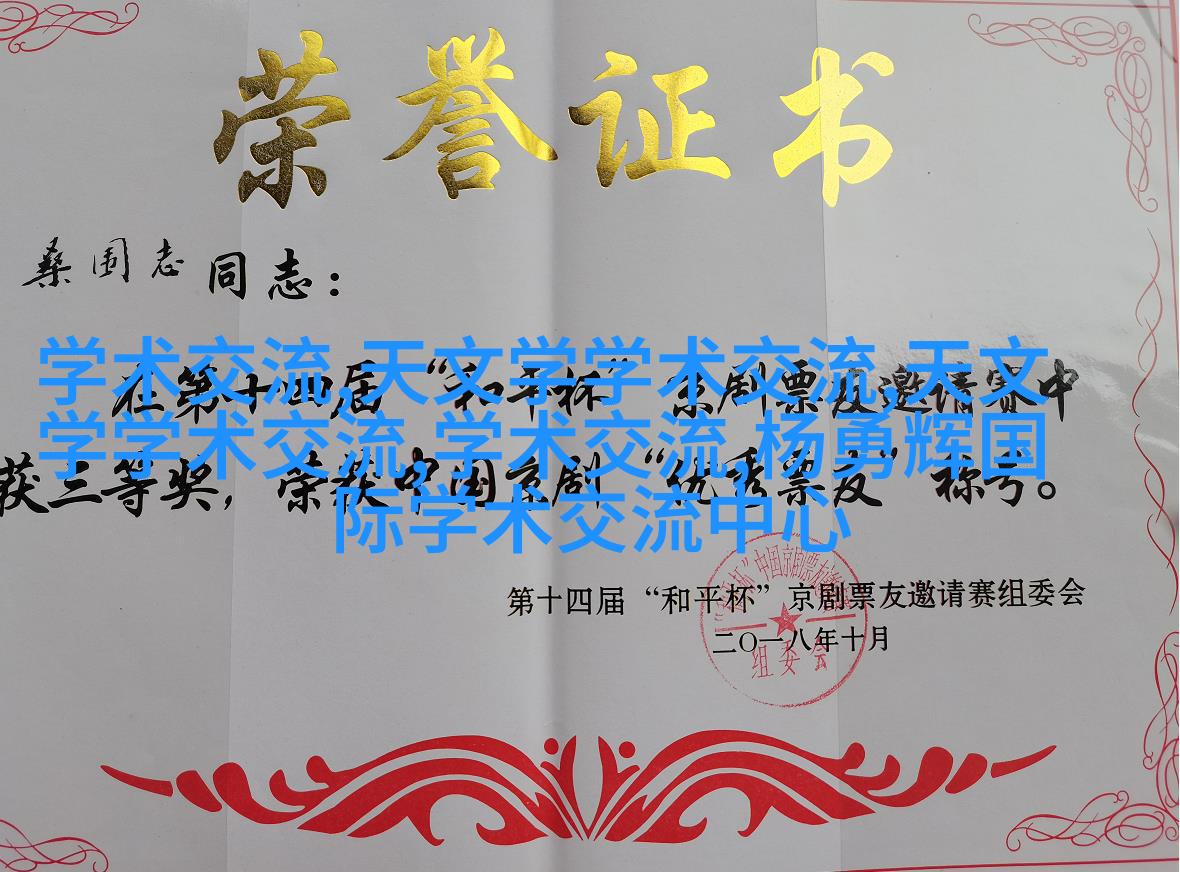 荣誉证书
桑国志同志：
学术交流,天文学学术交流,天文
在第十四届“和平杯”京剧票友邀请赛中
学学术交流,学术交流,杨勇辉国
获三等奖，荣获中国京剧“优秀票友”称号。
际学术交流中心
第十四届“和平杯”京剧票友邀请赛组委会
二〇一八年十月
组委会